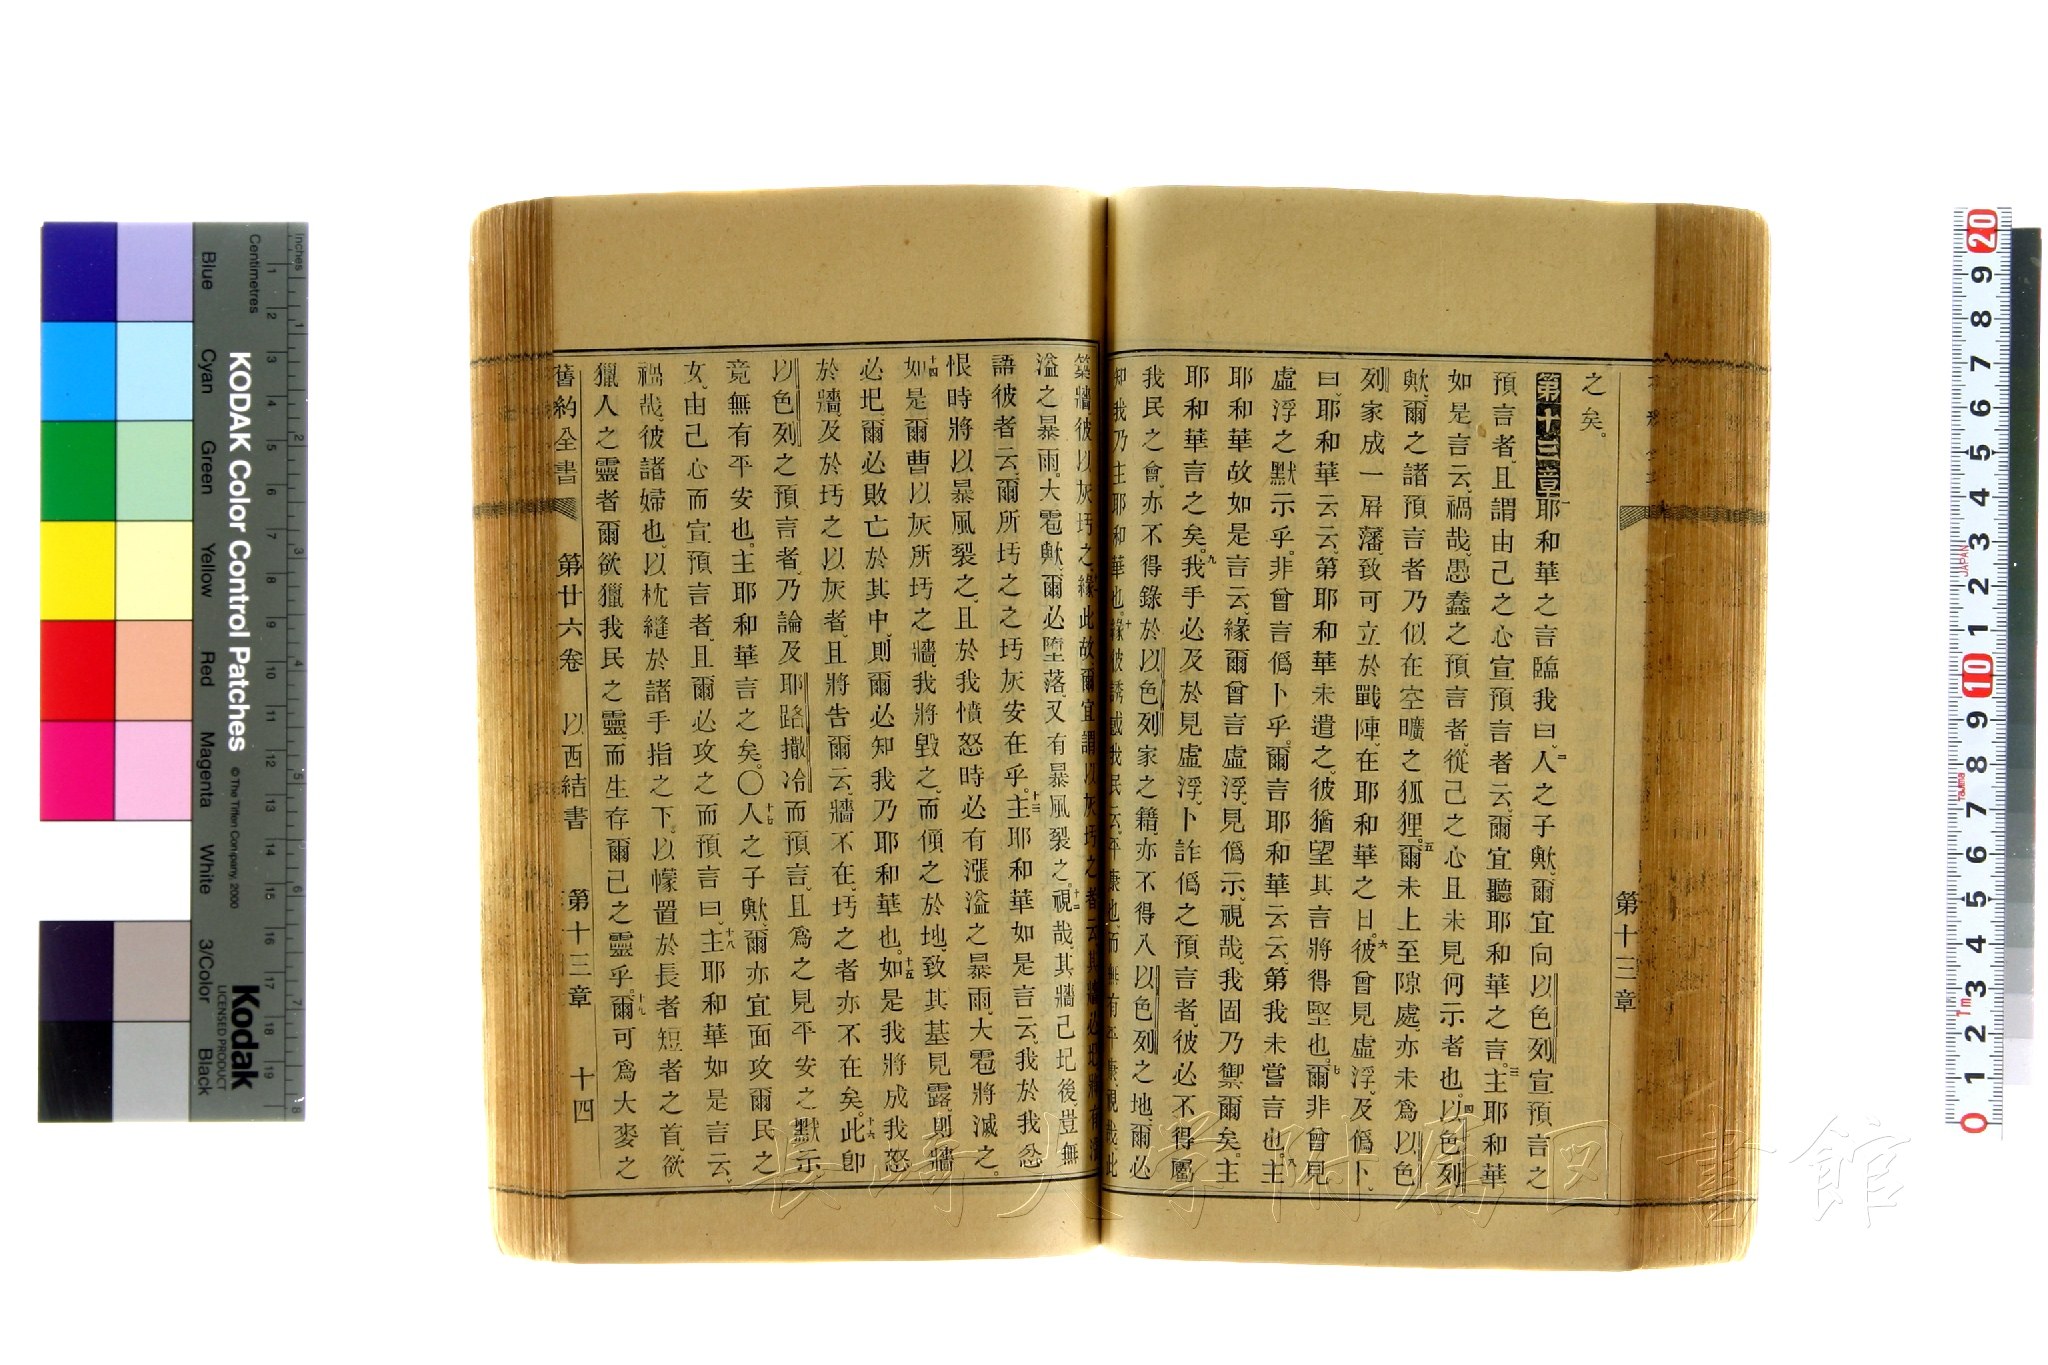 第十三章
之矣。
第十三章一耶和華之言臨我曰、二人之子歟、爾宜向以色列宣預言之
預言者、且謂由己之心宣預言者云、爾宜聽耶和華之言。三主耶和華
如是言云、禍哉、愚蠢之預言者、從己之心且未見何示者也。四以色列
歟、爾之諸預言者乃似在空曠之狐狸。五爾未上至隙處、亦未為以色
列家成一屏藩、致可立於戰陣、在耶和華之日。六彼曾見虛浮、及偽卜、
曰、耶和華云云、第耶和華未遣之、彼猶望其言將得堅也。七爾非曾見
虛浮之默示乎。非曾言偽卜乎。爾言耶和華云云、第我未嘗言也。八主
耶和華故如是言云、緣爾曾言虛浮、見偽示、視哉、我固乃禦爾矣。主
耶和華言之矣。九我手必及於見虛浮、卜詐偽之預言者、彼必不得屬
我民之會、亦不得錄於以色列家之籍、亦不得入以色列之地、爾必
知我乃主耶和華也。十緣彼誘惑我民云、平康也、而無有平康、視哉、此
築牆、彼以灰圬之、緣此故、爾宜謂以灰圬之者云、其牆必圮、將有漲
溢之暴雨。大雹歟、爾必墮落、又有暴風裂之。十二視哉、其牆已圮後、豈無
語彼者云、爾所圬之之圬灰安在乎。十三主耶和華如是言云、我於我忿
恨時將以暴風裂之、且於我憤怒時必有漲溢之暴雨、大雹將滅之。
十四如是爾曹以灰所圬之牆、我將毀之、而傾之於地、致其基見露、則牆
必圮、爾必敗亡於其中、則爾必知我乃耶和華也。十五如是我將成我怒
於牆、及於圬之以灰者、且將告爾云、牆不在、圬之者亦不在矣。十六此卽
以色列之預言者、乃論及耶路撒冷而預言、且為之見平安之默示、
竟無有平安也。主耶和華言之矣。○十七人之子歟、爾亦宜面攻爾民之
女、由己心而宣預言者、且爾必攻之而預言曰、十八主耶和華如是言云、
禍哉、彼諸婦也、以枕縫於諸手指之下。以幪置於長者短者之首、欲
獵人之靈者、爾欲獵我民之靈、而生存爾己之靈乎。十九爾可為大麥之
舊約全書　第廿六卷　以西結書　第十三章　十四
長崎大学附属図書館
Inches
Centimetres
Blue Cyan Green Yellow Red Magenta White 3/Color Black
KODAK Color Control Patches
© The Tiffen Company, 2000
Kodak
LICENSED PRODUCT
1 2 3 4 5 6 7 8 9 10 11 12 13 14 15 16 17 18 19
1 2 3 4 5 6 7 8
0 1 2 3 4 5 6 7 8 9 10 1 2 3 4 5 6 7 8 9 20
1m Tajima JAPAN